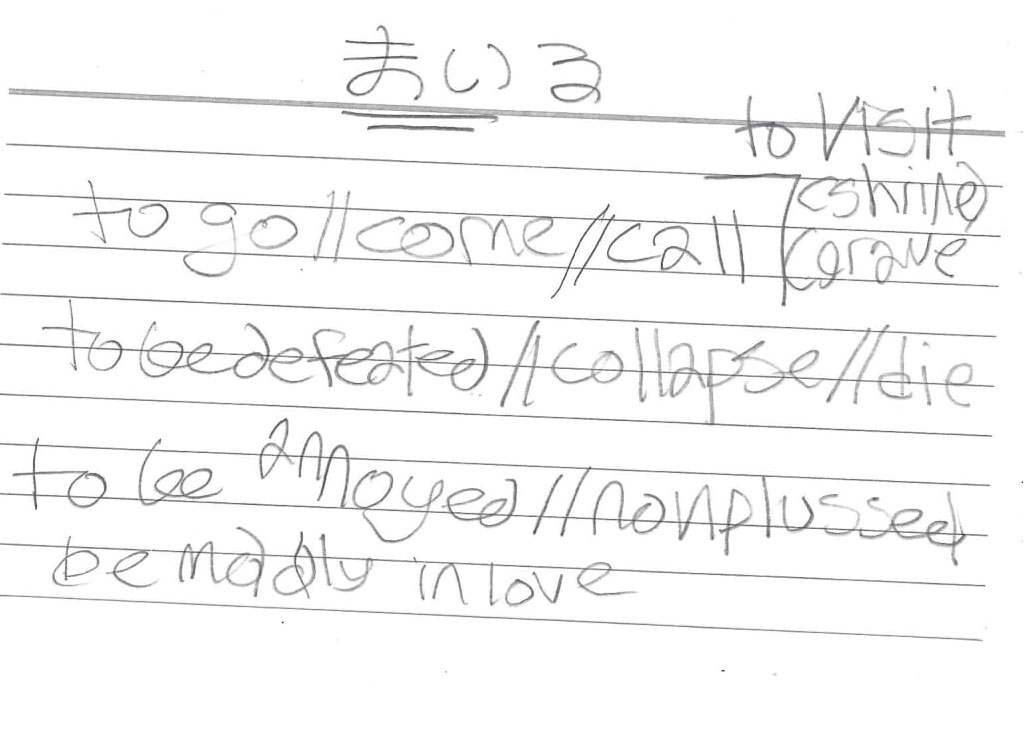 まいる
to visit
(shrine)
(grave
to go//come//call
to be defeated//collapse//die
to be annoyed//nonplussed
be madly in love